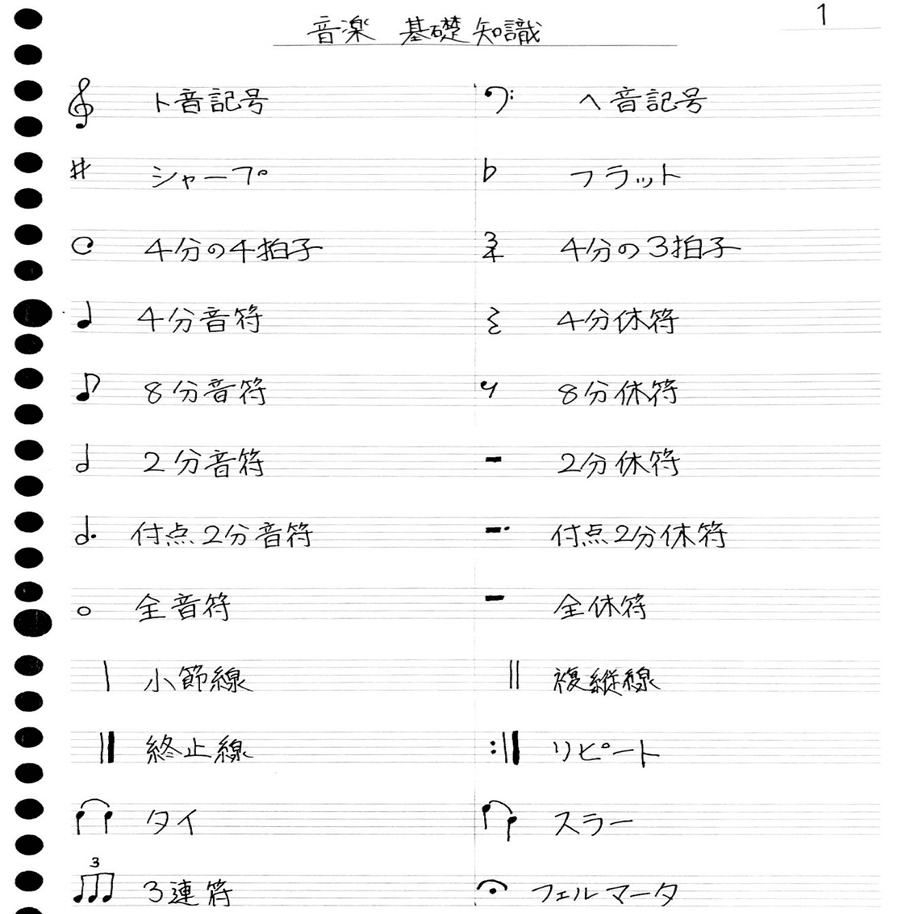 音楽 基礎知識 1
ト音記号 ヘ音記号
シャープ フラット
4分の4拍子 3 4 4分の3拍子
4分音符 4分休符
8分音符 8分休符
2分音符 2分休符
付点2分音符 付点2分休符
全音符 全休符
小節線 複縦線
終止線 リピート
タイ スラー
3
3連符 フェルマータ